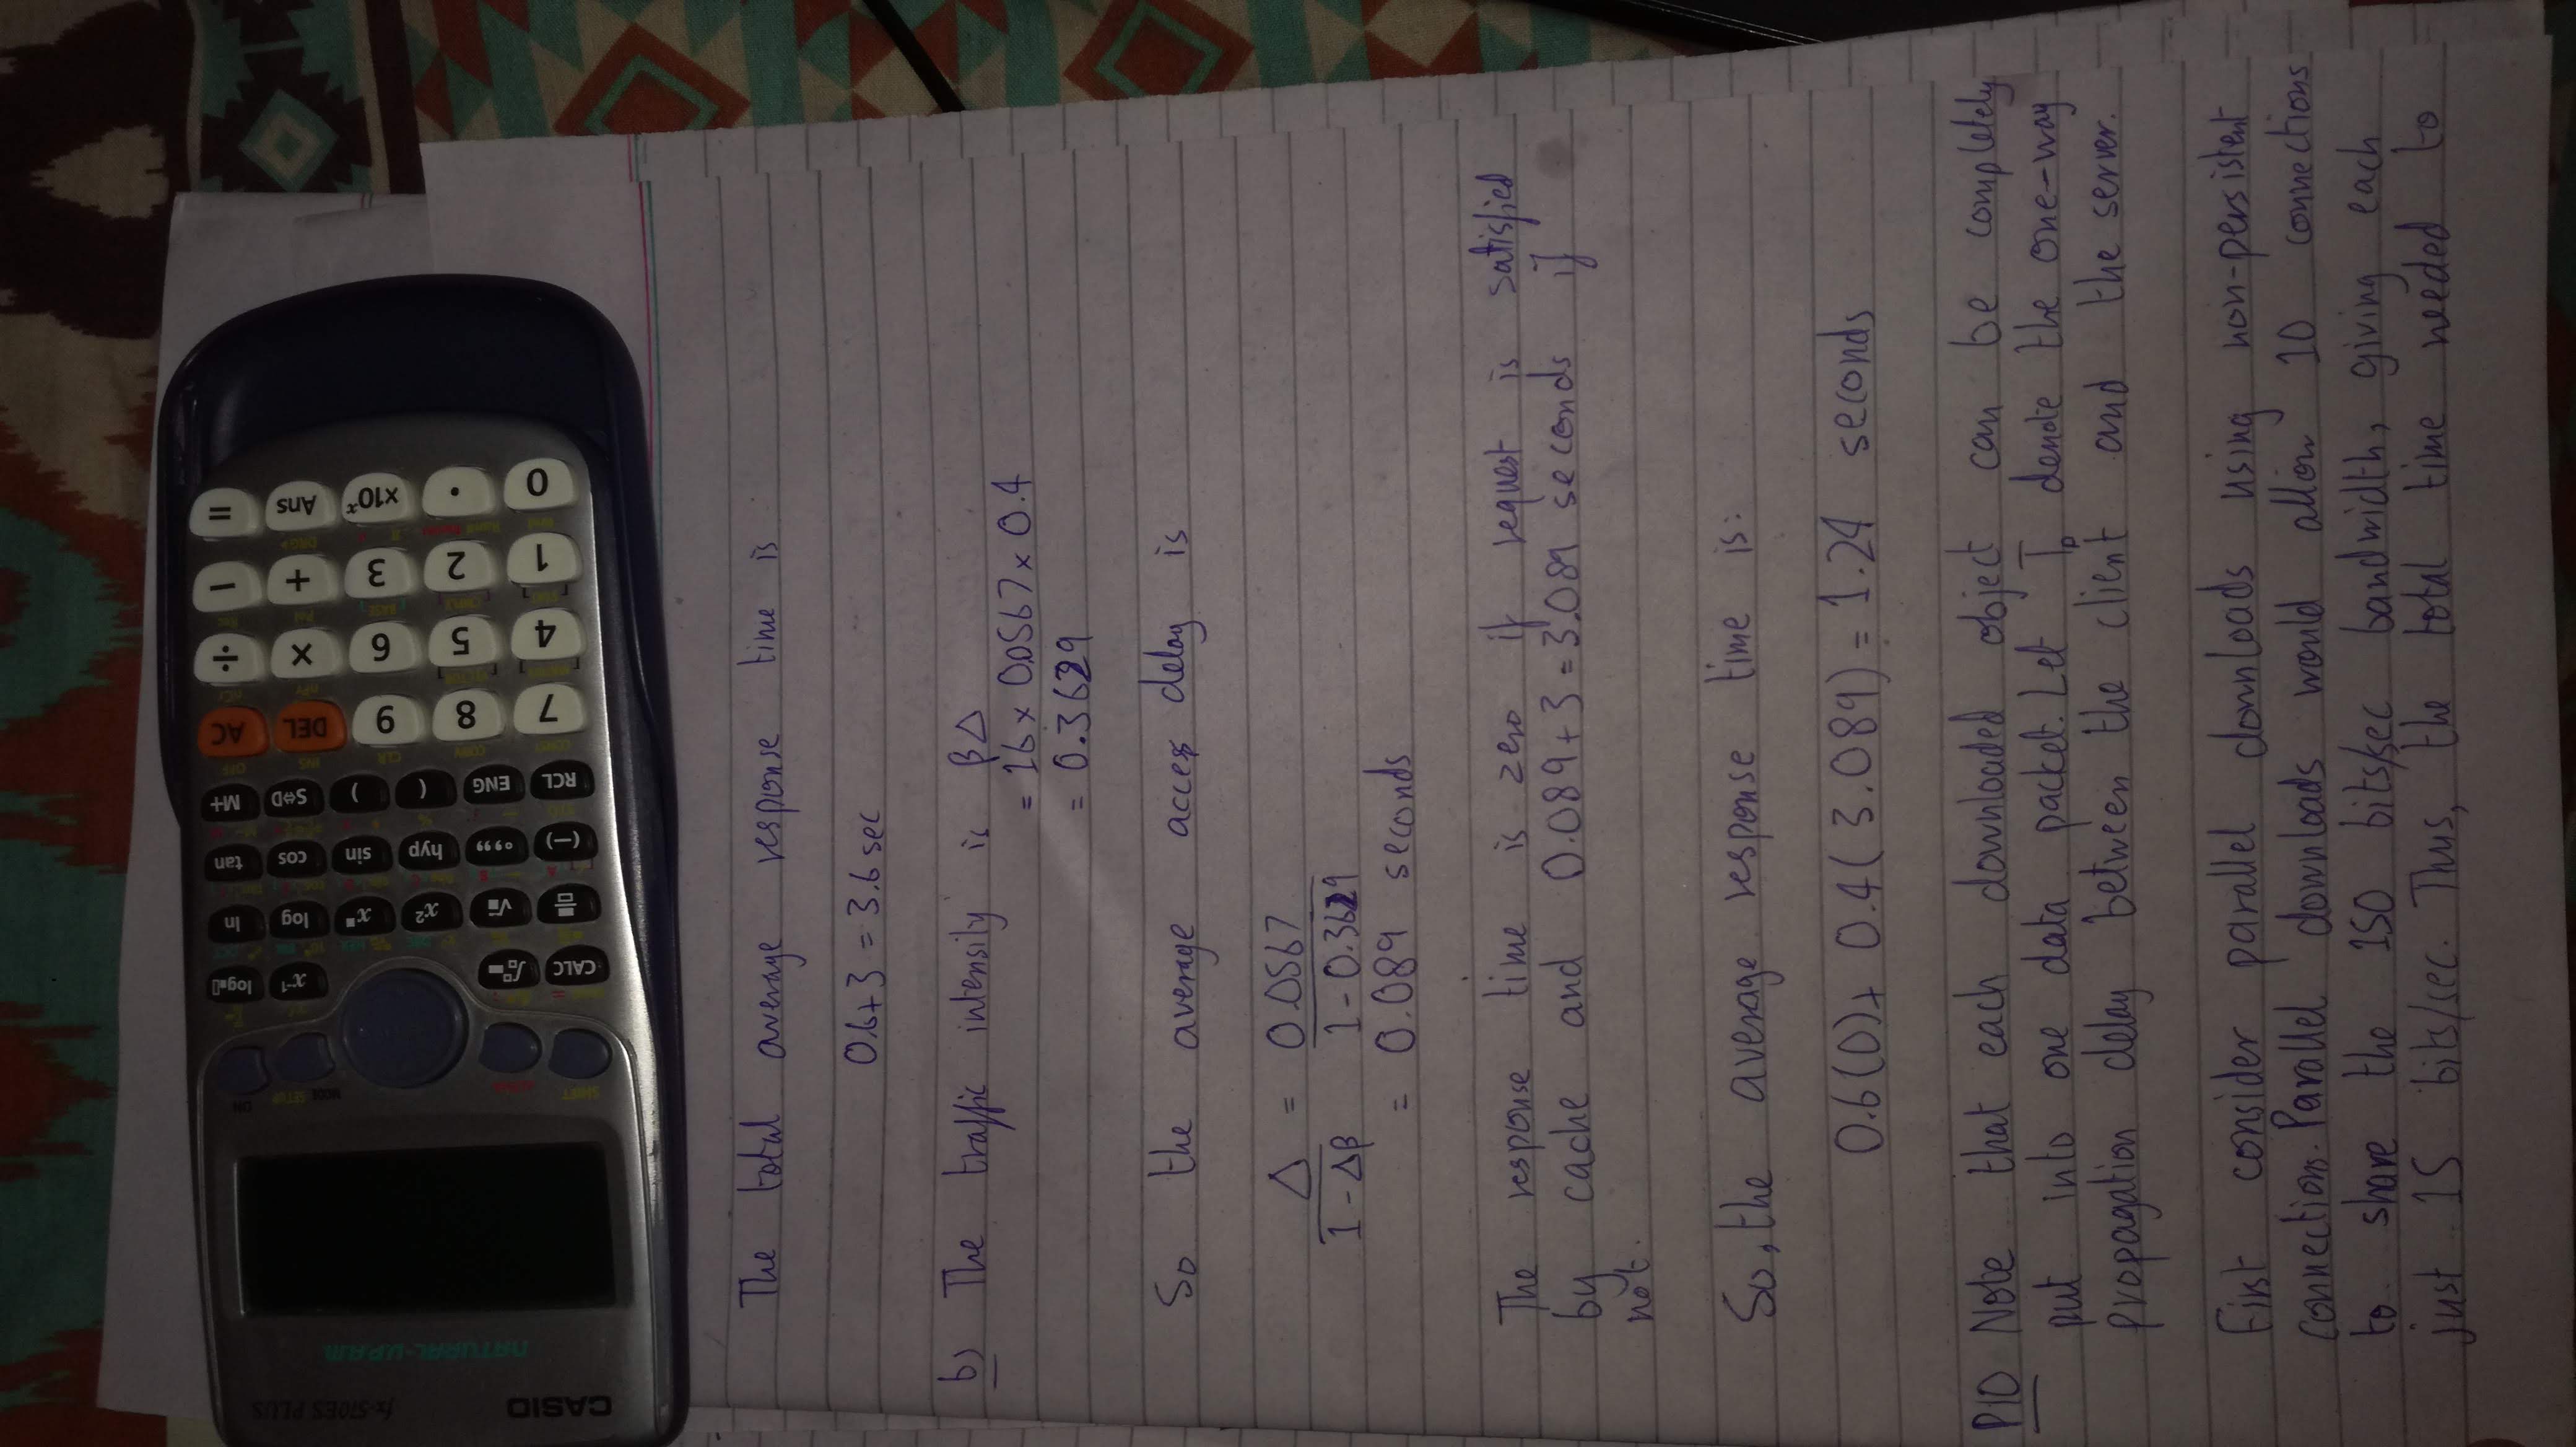 CASIO
fx-570ES PLUS
NATURAL-V.P.A.M.
SHIFT
MODE SETUP
ON
CALC
x⁻¹
log
√
x²
log
ln
(−)
hyp
sin
cos
tan
RCL
ENG
(
)
S⇔D
M+
7
8
9
DEL
AC
4
5
6
×
÷
1
2
3
+
−
0
.
×10ˣ
Ans
=
The total average response time is
0.6+3 = 3.6 sec
b) The traffic intensity is βΔ
= 16 × 0.0567 × 0.4
= 0.3629
So the average access delay is
Δ = 0.0567
1 - Δβ 1 - 0.3629
= 0.089 seconds
The response time is zero if request is satisfied
by cache and 0.089 + 3 = 3.089 seconds if
not.
So, the average response time is:
0.6(0) + 0.4(3.089) = 1.24 seconds
P10 Note that each downloaded object can be completely
put into one data packet. Let Tp denote the one-way
propagation delay between the client and the server.
First consider parallel downloads using non-persistent
connection. Parallel downloads would allow 10 connections
to share the 150 bits/sec bandwidth, giving each
just 15 bits/sec. Thus, the total time needed to